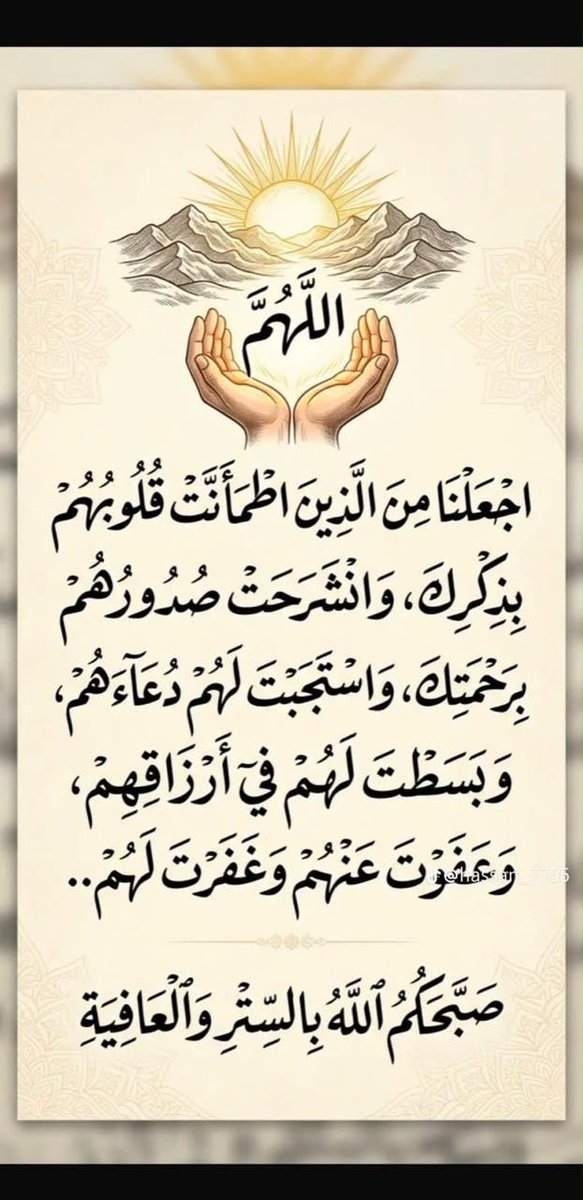 اللَّهُمَّ
اجْعَلْنَا مِنَ الَّذِينَ اطْمَأَنَّتْ قُلُوبُهُمْ
بِذِكْرِكَ، وَانْشَرَحَتْ صُدُورُهُمْ
بِرَحْمَتِكَ، وَاسْتَجَبْتَ لَهُمْ دُعَآءَهُمْ،
وَبَسَطْتَ لَهُمْ فِيٓ أَرْزَاقِهِمْ،
وَعَفَوْتَ عَنْهُمْ وَغَفَرْتَ لَهُمْ..
صَبَّحَكُمُ ٱللَّهُ بِالسِّتْرِ وَٱلْعَافِيَةِ